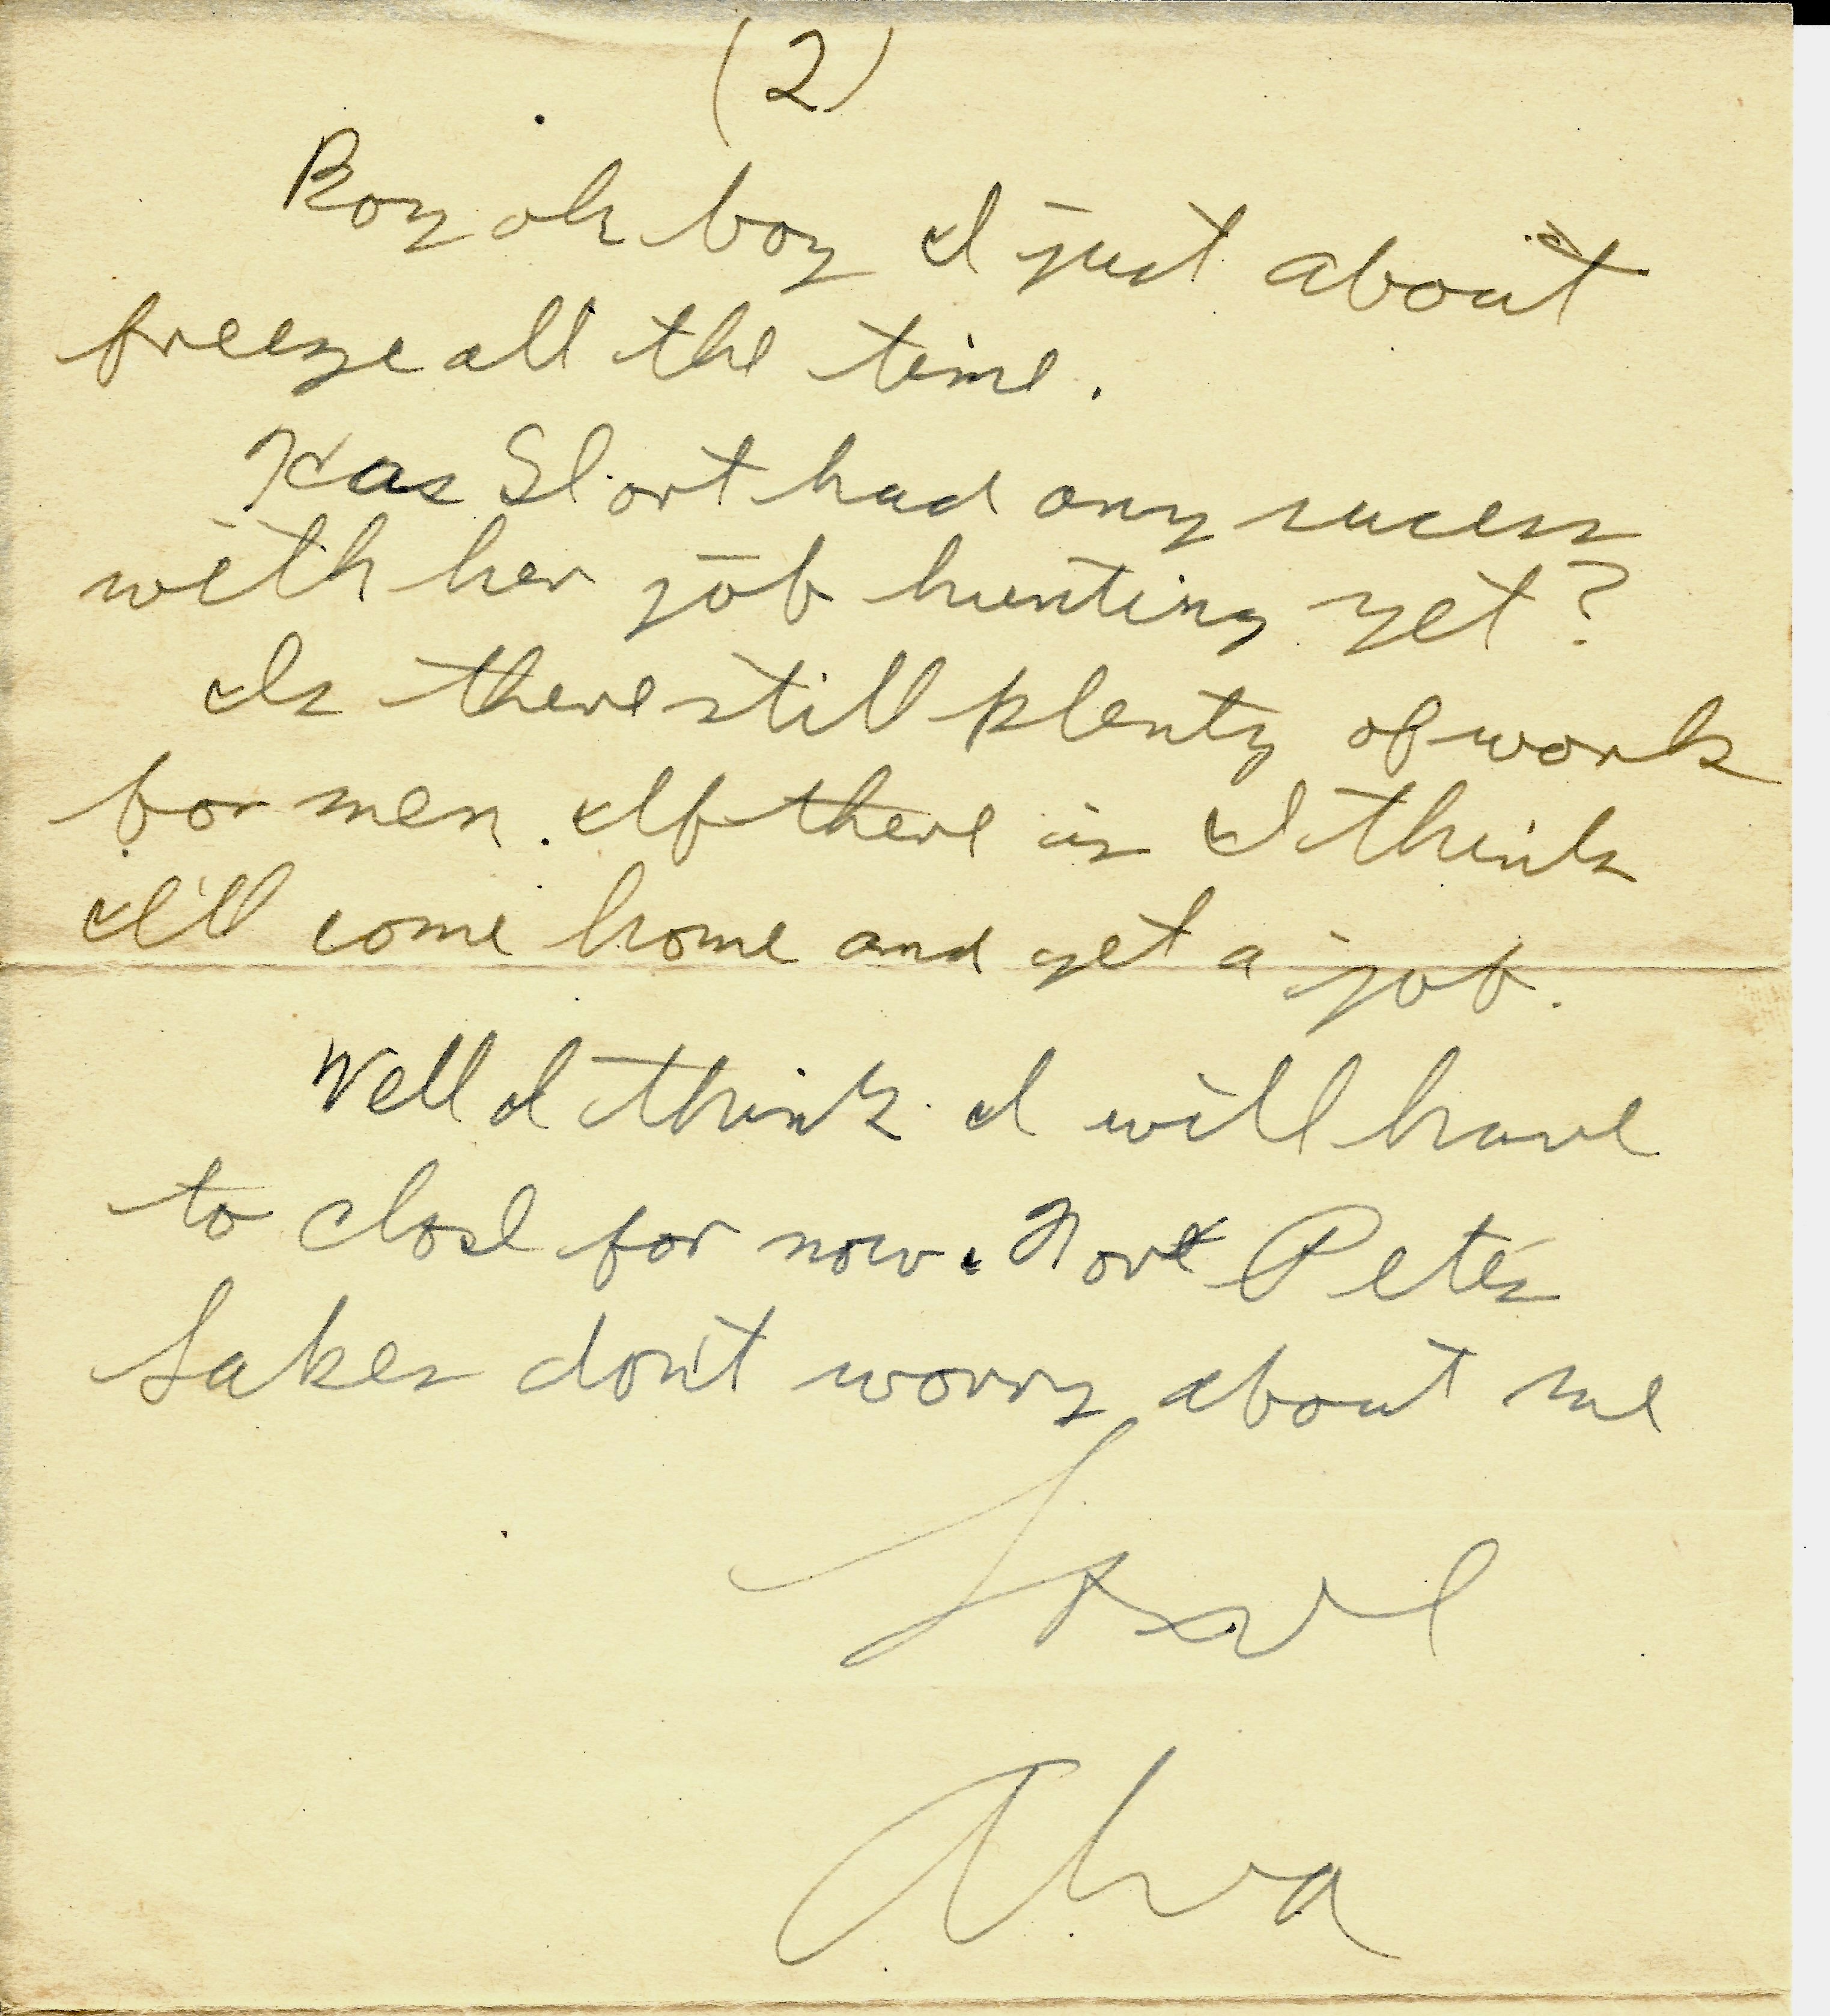 (2)
Boy oh boy I just about
freeze all the time.
Has Short had any sucess
with her job hunting yet?
Is there still plenty of work
for men. If there is I think
I'll come home and get a job.
Well I think I will have
to close for now. For Pete's
Sakes don't worry about me
Love
Alva